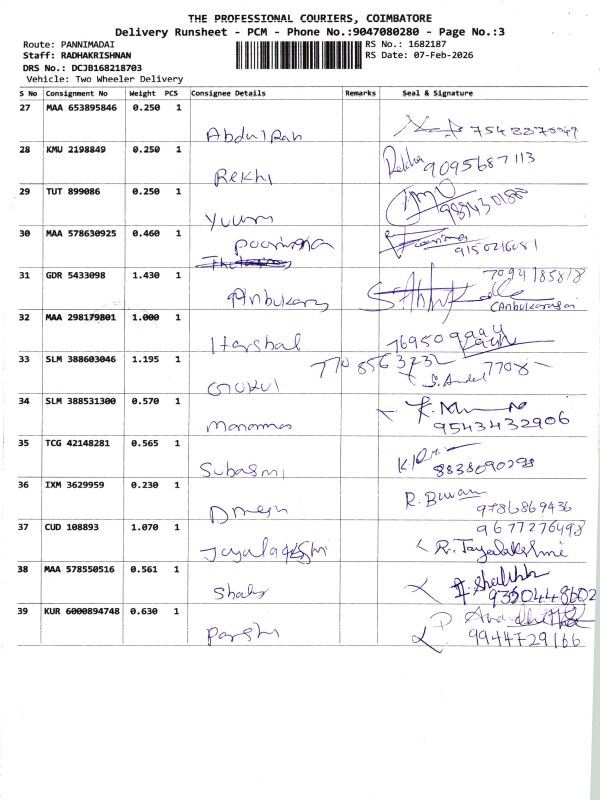 THE PROFESSIONAL COURIERS, COIMBATORE
Delivery Runsheet - PCM - Phone No.:9047080280 - Page No.:3
Route: PANNIMADAI
RS No.: 1682187
Staff: RADHAKRISHNAN
RS Date: 07-Feb-2026
DRS No.: DCJB168218703
Vehicle: Two Wheeler Delivery
S No Consignment No Weight PCS Consignee Details Remarks Seal & Signature
27 MAA 653895846 0.250 1
28 KMU 2198849 0.250 1
Rekha 9095687113
Rekhi
29 TUT 899086 0.250 1
30 MAA 578630925 0.460 1
Poornima
9150216081
31 GDR 5433098 1.430 1
7094185818
Anbukaras
(Anbukarasai
32 MAA 298179801 1.000 1
Harshal
33 SLM 388603046 1.195 1
7708563232
Gokul
7708
34 SLM 388531300 0.570 1
9543432906
35 TCG 42148281 0.565 1
8838090298
36 IXM 3629959 0.230 1
9786869436
37 CUD 108893 1.070 1
9677276498
Jayalakshmi
R. Jayalakshmi
38 MAA 578550516 0.561 1
9350448602
39 KUR 6000894748 0.630 1
9944729166